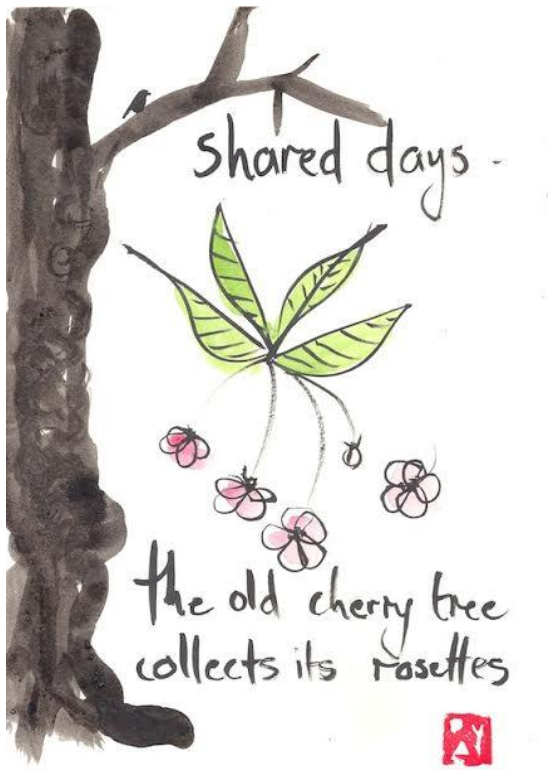 shared days -
the old cherry tree
collects its rosettes